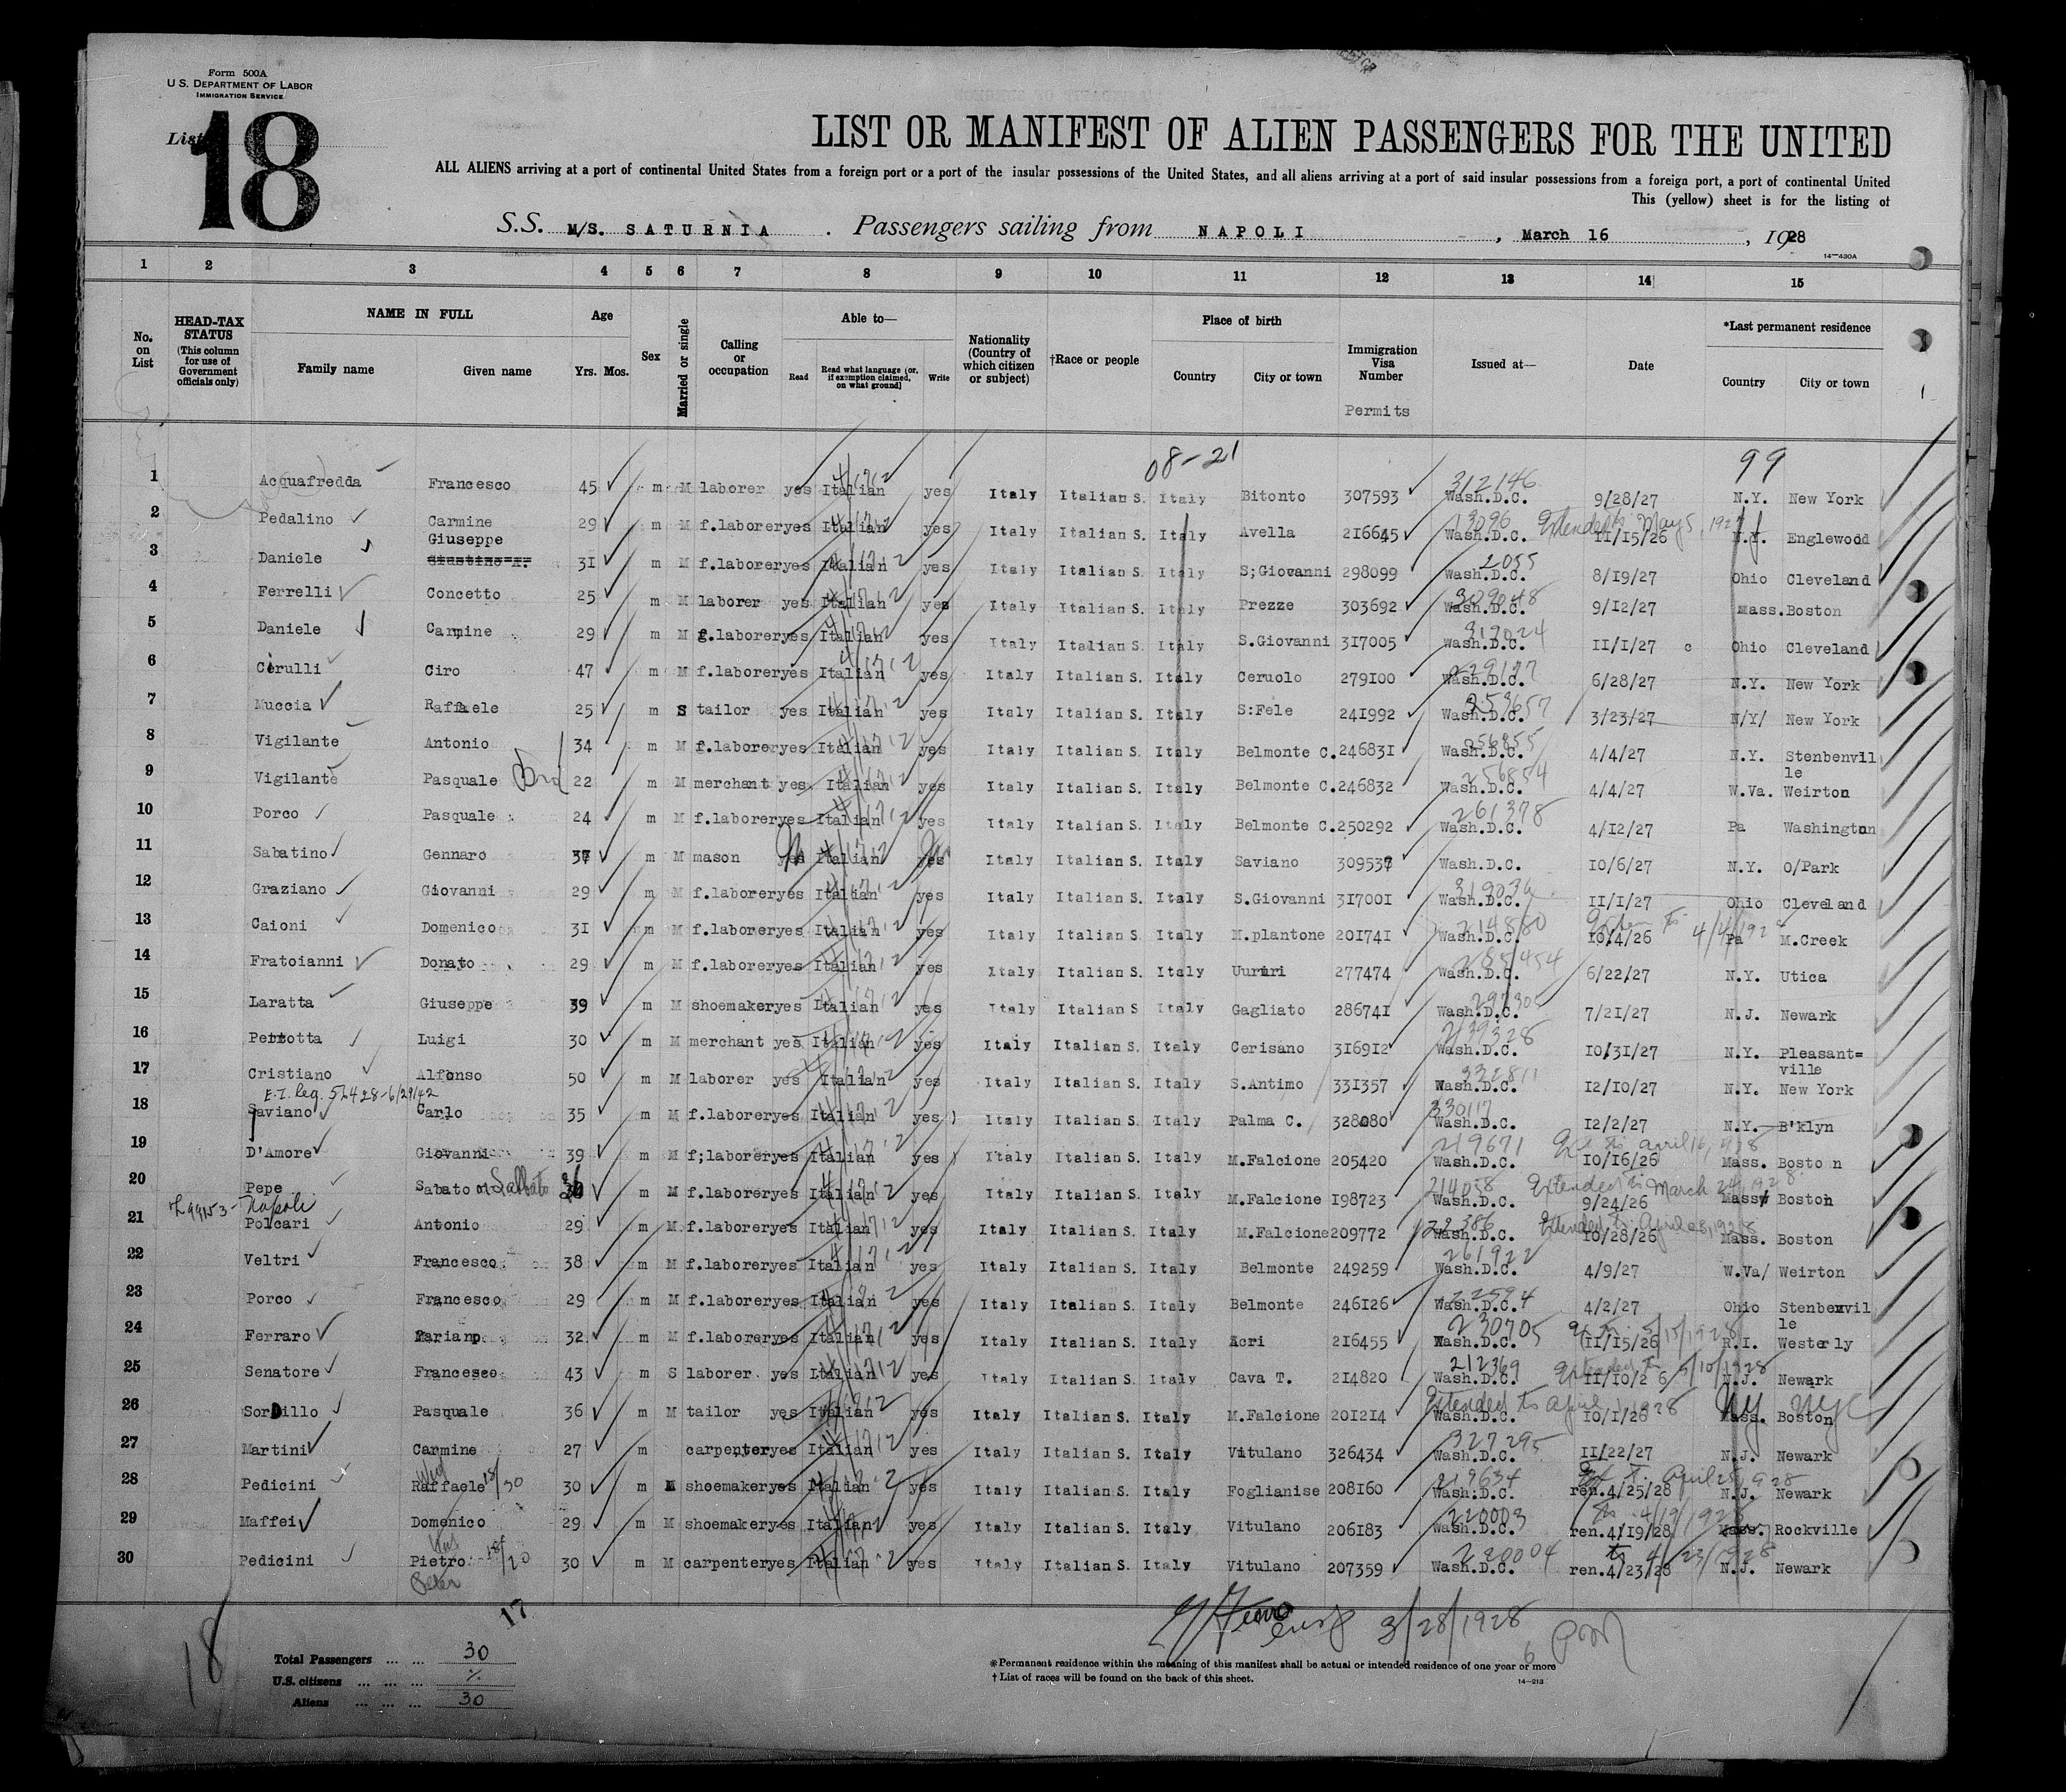 Form 500A
U.S. DEPARTMENT OF LABOR
IMMIGRATION SERVICE
List 18
LIST OR MANIFEST OF ALIEN PASSENGERS FOR THE UNITED
ALL ALIENS arriving at a port of continental United States from a foreign port or a port of the insular possessions of the United States, and all aliens arriving at a port of said insular possessions from a foreign port, a port of continental United
This (yellow) sheet is for the listing of
S.S. M/S. SATURNIA . Passengers sailing from NAPOLI , March 16 , 1928
14—430A
1 2 3 4 5 6 7 8 9 10 11 12 13 14 15
No. on List
HEAD-TAX STATUS (This column for use of Government officials only)
NAME IN FULL
Family name Given name
Age Yrs. Mos.
Sex
Married or single
Calling or occupation
Able to—
Read Read what language (or, if exemption claimed, on what ground) Write
Nationality (Country of which citizen or subject)
†Race or people
Place of birth
Country City or town
Immigration Visa Number
Permits
Issued at—
Date
*Last permanent residence
Country City or town
08-21 99
1 Acquafredda Francesco 45 m M laborer yes Italian yes Italy Italian S. Italy Bitonto 307593 312146 Wash.D.C. 9/28/27 N.Y. New York
2 Pedalino Carmine 29 m M f.laborer yes Italian yes Italy Italian S. Italy Avella 216645 Wash.D.C. Extended to May 5, 11/15/26 N.Y. Englewood
3 Daniele Giuseppe 31 m M f.laborer yes Italian yes Italy Italian S. Italy S;Giovanni 298099 2055 Wash.D.C. 8/19/27 Ohio Cleveland
4 Ferrelli Concetto 25 m M laborer yes Italian yes Italy Italian S. Italy Prezze 303692 309048 Wash.D.C. 9/12/27 Mass. Boston
5 Daniele Carmine 29 m M f.laborer yes Italian yes Italy Italian S. Italy S.Giovanni 317005 319024 Wash.D.C. 11/1/27 c Ohio Cleveland
6 Cerulli Ciro 47 m M f.laborer yes Italian yes Italy Italian S. Italy Ceruolo 279100 Wash.D.C. 6/28/27 N.Y. New York
7 Muccia Raffaele 25 m S tailor yes Italian yes Italy Italian S. Italy S:Fele 241992 Wash.D.C. 3/23/27 N/Y/ New York
8 Vigilante Antonio 34 m M f.laborer yes Italian yes Italy Italian S. Italy Belmonte C. 246831 256855 Wash.D.C. 4/4/27 N.Y. Stenbenville
9 Vigilante Pasquale Bro 22 m M merchant yes Italian yes Italy Italian S. Italy Belmonte C. 246832 256854 Wash.D.C. 4/4/27 W.Va. Weirton
10 Porco Pasquale 24 m M f.laborer yes Italian yes Italy Italian S. Italy Belmonte C. 250292 261378 Wash.D.C. 4/12/27 Pa Washington
11 Sabatino Gennaro 37 m M mason yes Italian yes Italy Italian S. Italy Saviano 309537 Wash.D.C. 10/6/27 N.Y. O/Park
12 Graziano Giovanni 29 m M f.laborer yes Italian yes Italy Italian S. Italy S.Giovanni 317001 Wash.D.C. 11/1/27 Ohio Cleveland
13 Caioni Domenico 31 m M f.laborer yes Italian yes Italy Italian S. Italy M.plantone 201741 214880 Wash.D.C. 10/4/26 4/4/192 Pa M.Creek
14 Fratoianni Donato 29 m M f.laborer yes Italian yes Italy Italian S. Italy Ururi 277474 Wash.D.C. 6/22/27 N.Y. Utica
15 Laratta Giuseppe 39 m M shoemaker yes Italian yes Italy Italian S. Italy Gagliato 286741 Wash.D.C. 7/21/27 N.J. Newark
16 Perrotta Luigi 30 m M merchant yes Italian yes Italy Italian S. Italy Cerisano 316912 Wash.D.C. 10/31/27 N.Y. Pleasant=ville
17 Cristiano Alfonso 50 m M laborer yes Italian yes Italy Italian S. Italy S.Antimo 331357 332811 Wash.D.C. 12/10/27 N.Y. New York
18 Saviano Carlo 35 m M f.laborer yes Italian yes Italy Italian S. Italy Palma C. 328080 330117 Wash.D.C. 12/2/27 N.Y. B'klyn
19 D'Amore Giovanni 39 m M f;laborer yes Italian yes Italy Italian S. Italy M.Falcione 205420 219671 Wash.D.C. Ext to April 16, 1928 10/16/26 Mass. Boston
20 Pepe Sabato or Sabbato m M f.laborer yes Italian yes Italy Italian S. Italy M.Falcione 198723 Wash.D.C. Extended to March 24, 1928 9/24/26 Mass Boston
Napoli
21 Polcari Antonio 29 m M f.laborer yes Italian yes Italy Italian S. Italy M.Falcione 209772 Wash.D.C. Extended to April 28, 1928 10/28/26 Mass. Boston
22 Veltri Francesco 38 m M f.laborer yes Italian yes Italy Italian S. Italy Belmonte 249259 261922 Wash.D.C. 4/9/27 W.Va/ Weirton
23 Porco Francesco 29 m M f.laborer yes Italian yes Italy Italian S. Italy Belmonte 246126 Wash.D.C. 4/2/27 Ohio Stenbenville
24 Ferraro Mariano 32 m M f.laborer yes Italian yes Italy Italian S. Italy Acri 216455 230705 Wash.D.C. 11/15/26 5/15/1928 R.I. Westerly
25 Senatore Francesco 43 m S laborer yes Italian yes Italy Italian S. Italy Cava T. 214820 212369 Wash.D.C. Extended to 5/10/1928 11/10/26 N.J. Newark
26 Sordillo Pasquale 36 m M tailor yes Italian yes Italy Italian S. Italy M.Falcione 201214 Extended to April 1, 1928 Wash.D.C. 10/1/26 NY NYC Mass. Boston
27 Martini Carmine 27 m carpenter yes Italian yes Italy Italian S. Italy Vitulano 326434 327295 Wash.D.C. 11/22/27 N.J. Newark
28 Pedicini Raffaele 30 m M shoemaker yes Italian yes Italy Italian S. Italy Foglianise 208160 219634 Wash.D.C. Ext to April 25, 1928 ren.4/25/28 N.J. Newark
29 Maffei Domenico 29 m M shoemaker yes Italian yes Italy Italian S. Italy Vitulano 206183 220003 Wash.D.C. to 4/19/1928 ren.4/19/28 Mass. Rockville
30 Pedicini Pietro Peter 30 m M carpenter yes Italian yes Italy Italian S. Italy Vitulano 207359 220004 Wash.D.C. to 4/23/1928 ren.4/23/28 N.J. Newark
17
18
3/28/1928
6 PM
Total Passengers ... ... 30
U.S. citizens ... ... ...
Aliens ... ... ... 30
*Permanent residence within the meaning of this manifest shall be actual or intended residence of one year or more
† List of races will be found on the back of this sheet.
14—213